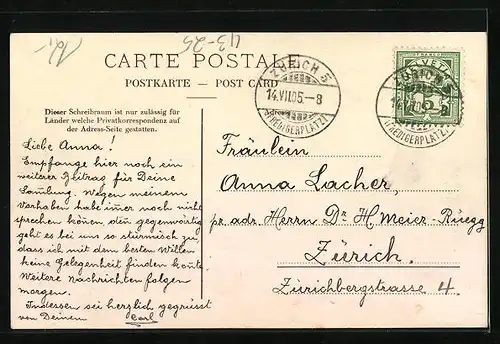 10,-
43-25
CARTE POSTALE
POSTKARTE — POST CARD
Dieser Schreibraum ist nur zulässig für
Länder welche Privatkorrespondenz auf
der Adress-Seite gestatten.
Adresse
ZÜRICH 5
14.VII.05.–8
(PREDIGERPLATZ)
ZÜRICH 5
14.VII.05.–8
(PREDIGERPLATZ)
HELVETIA
5
Liebe Anna!
Empfange hier noch ein
weiterer Beitrag für Deine
Samlung. Wegen meinem
Vorhaben habe imer noch nicht
sprechen könen den gegenwärtig
geht es bei uns so stürmisch zu,
dass ich mit dem besten Willen
keine Gelegenheit finden konte.
Weitere nachrichten folgen
morgen.
Indessen sei herzlich gegrüsst
von Deinem Carl
Fräulein
Anna Lacher,
pr. adr. Herrn Dr H. Meier-Rüegg
Zürich.
Zürichbergstrasse 4.